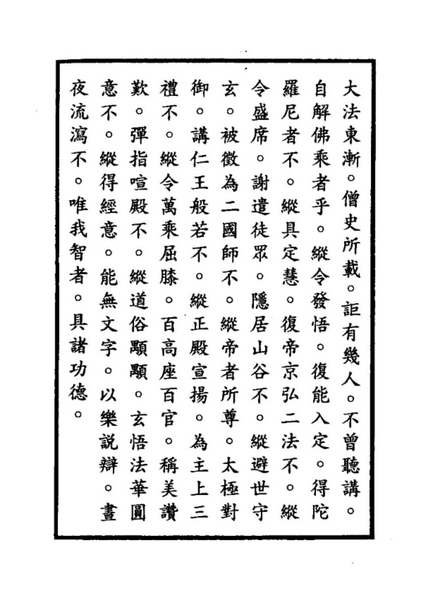 大法東漸。僧史所載。詎有幾人。不曾聽講。
自解佛乘者乎。縱令發悟。復能入定。得陀
羅尼者不。縱具定慧。復帝京弘二法不。縱
令盛席。謝遣徒眾。隱居山谷不。縱避世守
玄。被徵為二國師不。縱帝者所尊。太極對
御。講仁王般若不。縱正殿宣揚。為主上三
禮不。縱令萬乘屈膝。百高座百官。稱美讚
歎。彈指喧殿不。縱道俗顒顒。玄悟法華圓
意不。縱得經意。能無文字。以樂說辯。晝
夜流瀉不。唯我智者。具諸功德。